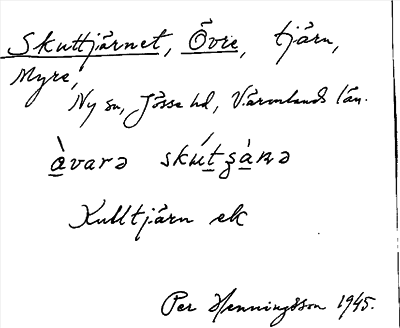 Skuttjärnet, Övre, tjärn,
Myre,
Ny sn, Jösse hd, Värmlands län.
å̀vara skútʂànə
Kulltjärn ek
Per Henningsson 1945.